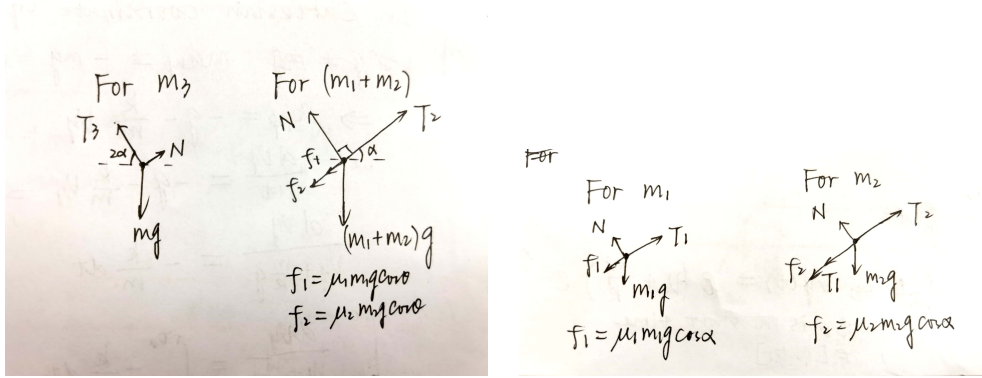 For m₃
T₃
2α
N
mg
For (m₁+m₂)
N
T₂
α
f₁
f₂
(m₁+m₂)g
f₁ = μ₁m₁g cosθ
f₂ = μ₂m₂g cosθ
For
For m₁
N
T₁
f₁
m₁g
f₁ = μ₁m₁g cosα
For m₂
N
T₂
f₂
T₁
m₂g
f₂ = μ₂m₂g cosα